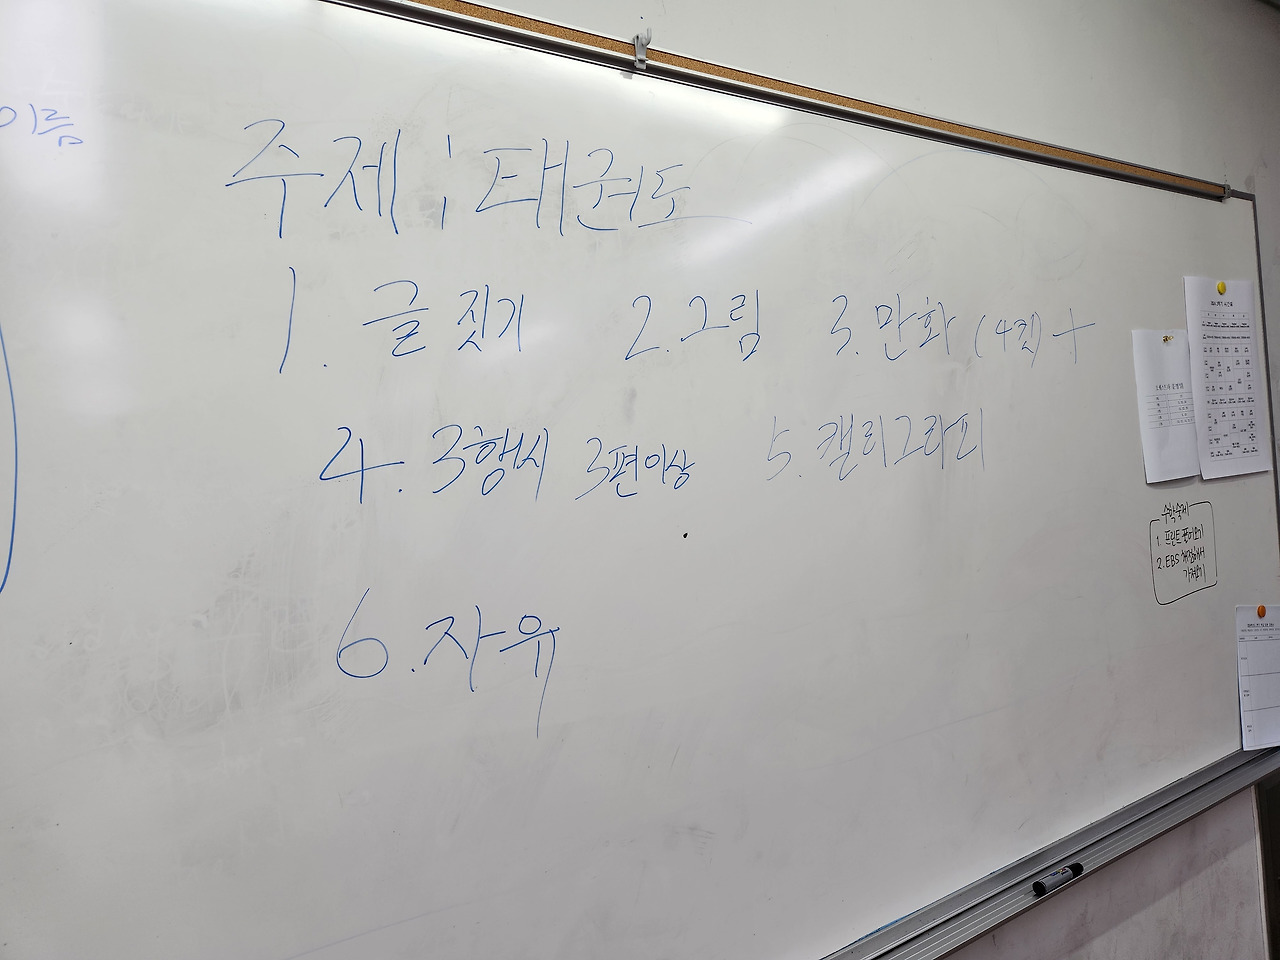 이름
주제 : 태권도
1. 글 짓기 2. 그림 3. 만화 (4컷) +
4. 3행시 3편이상 5. 캘리그라피
6. 자유
수학숙제
1. 프린트 풀어오기
2. EBS 채점해서
가져오기